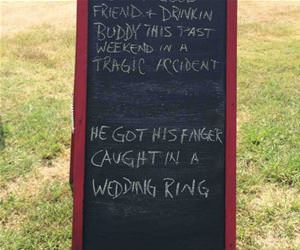 FRIEND + DRINKIN
BUDDY THIS PAST
WEEKEND IN A
TRAGIC ACCIDENT
HE GOT HIS FINGER
CAUGHT IN A
WEDDING RING